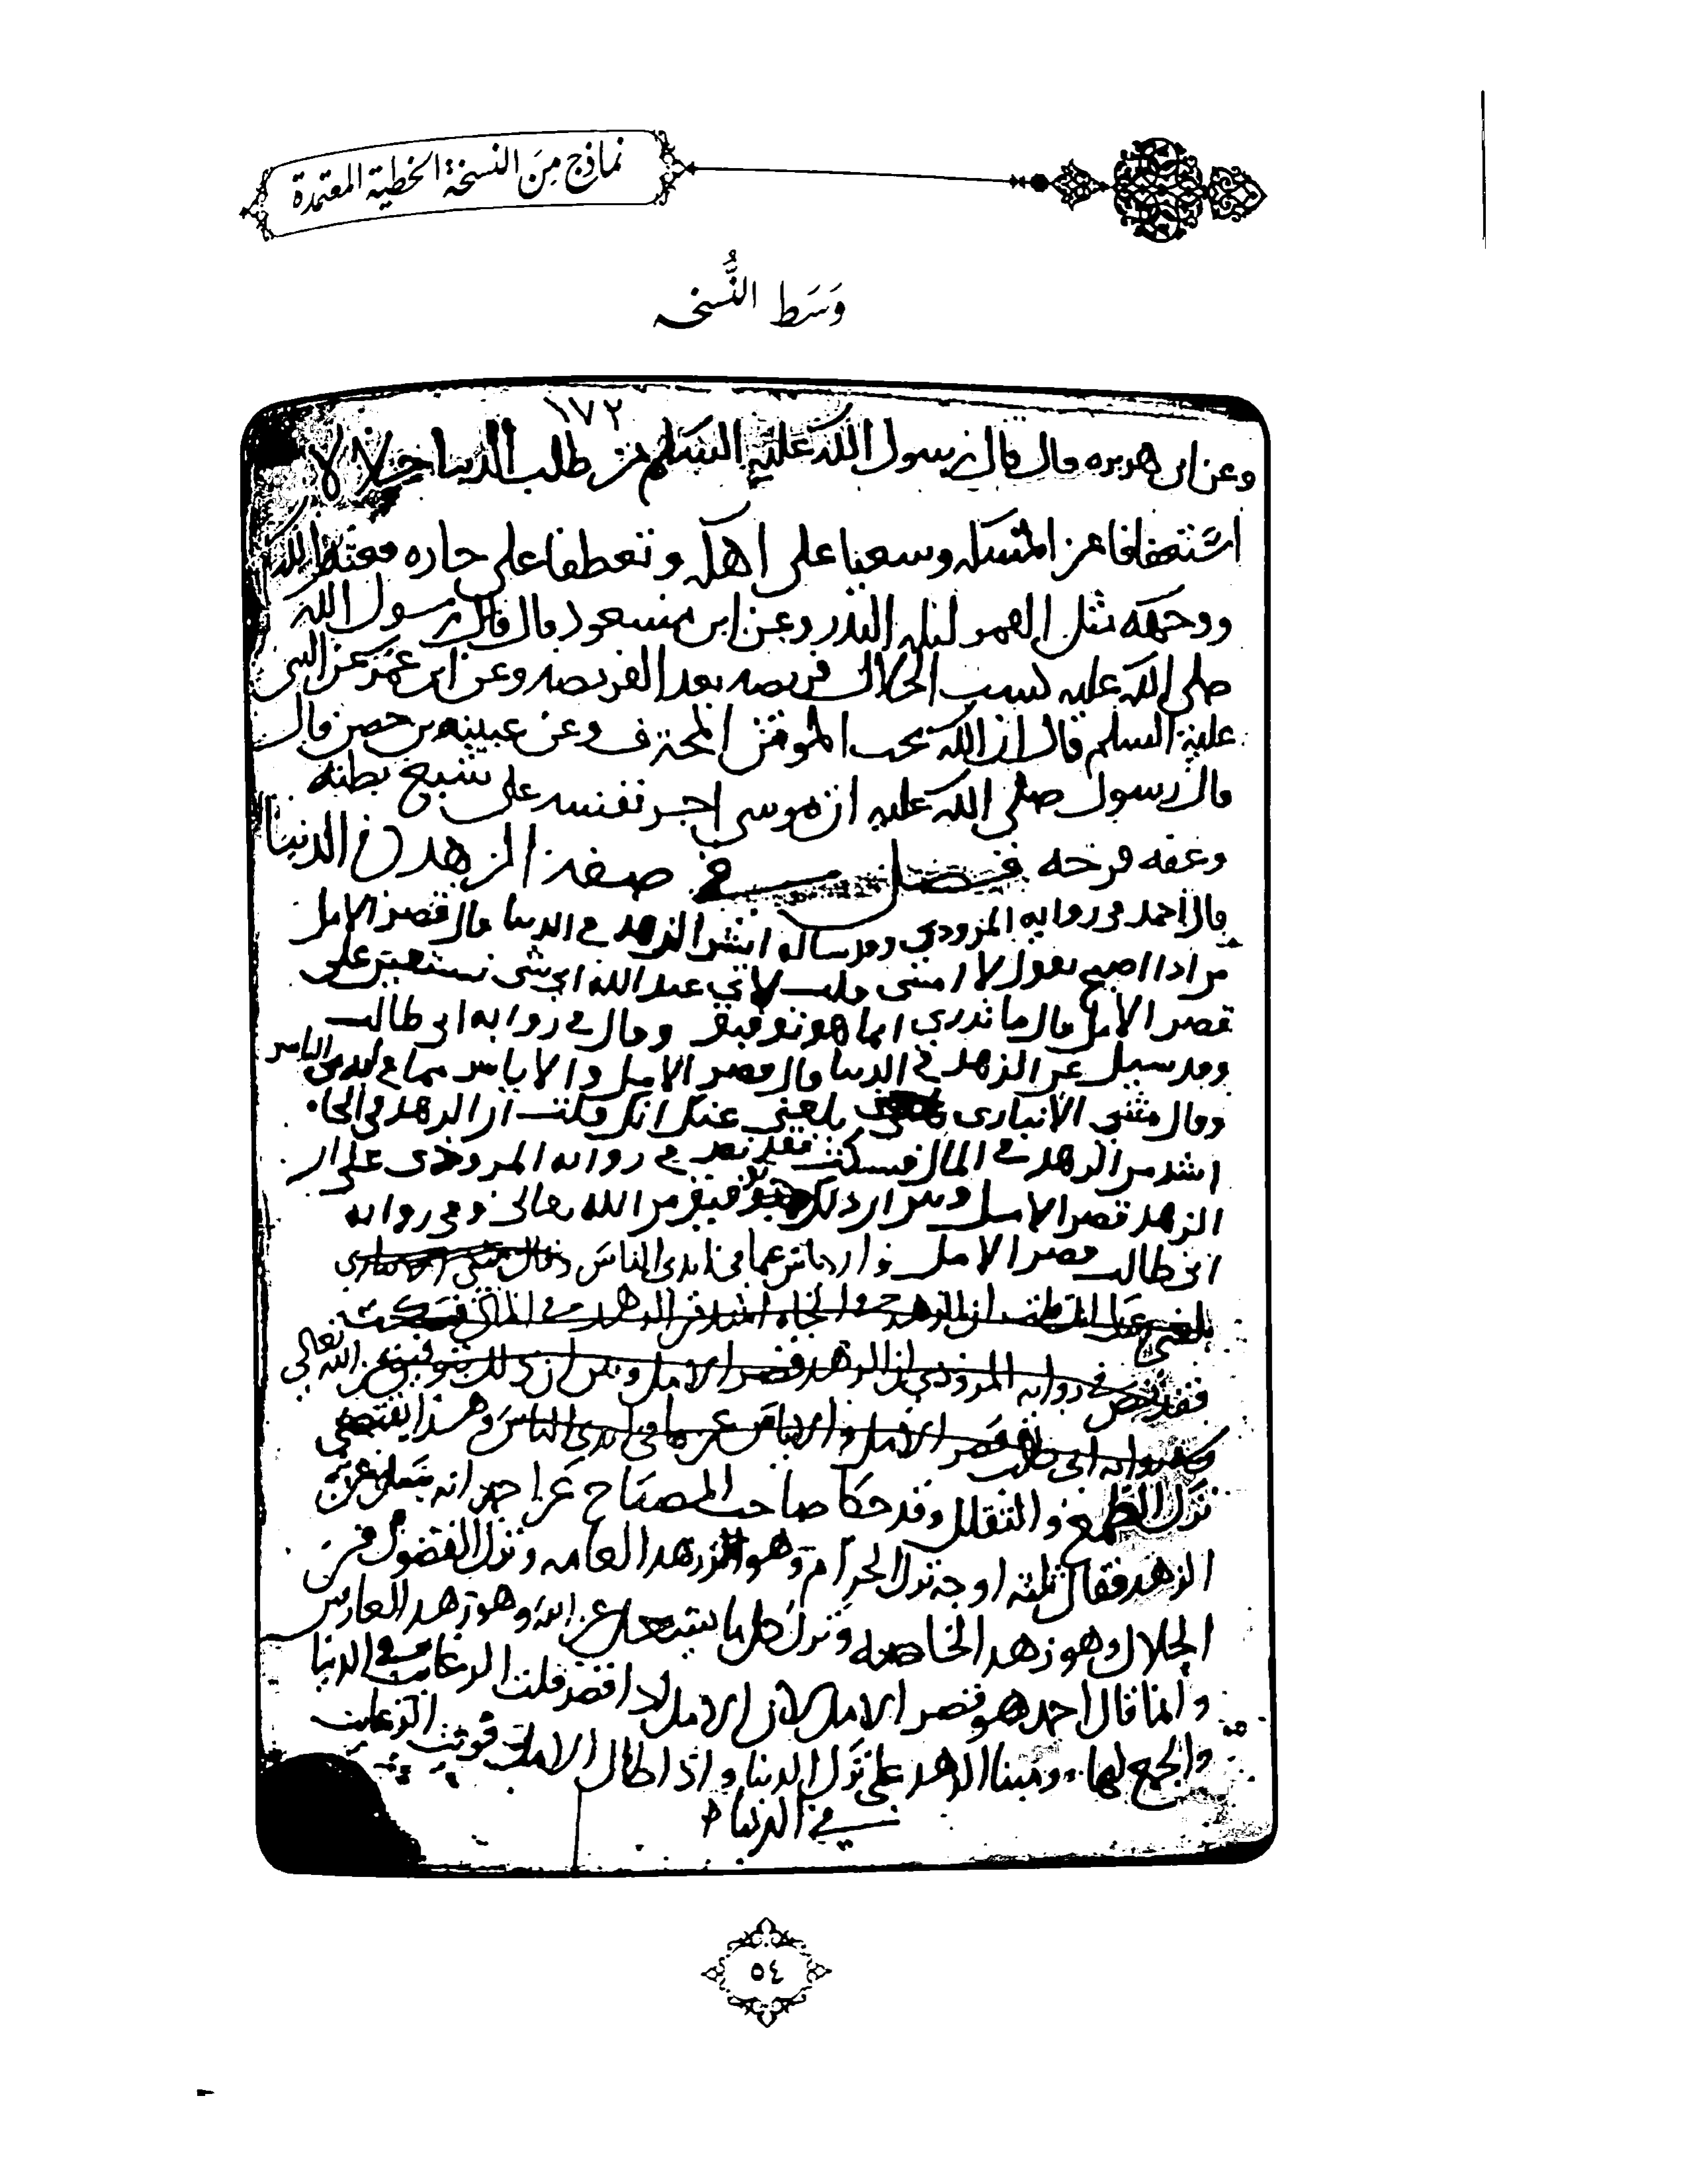 نماذج مِنَ النسخة الخطية المعتمدة
وَسَط النُّسخة
١٧٢
وعن ابى هريره قال قال رسول الله عليه السلم من طلب الدنيا حلالا
استعفافا عن المسله وسعيا على اهله وتعطفا على جاره الله
ووجهه مثل القمر ليله البدر وعن ابن مسعود قال قال رسول الله
صلى الله عليه كسب الحلال فريضه بعد الفريضه وعن ابن عمر عن النبى
عليه السلم قال ان الله يحب المومن المحترف وعن عيينه بن حصن قال
قال رسول صلى الله عليه ان موسى اجر نفسه على شبع بطنه
وعفه فرجه فصل في صفة الزهد في الدنيا
قال احمد في روايه المروذي وقد ساله ايش الزهد في الدنيا قال قصر الامل
من اذا اصبح يقول لا امسى قلت لابي عبد الله اي شى نستعين على
قصر الامل قال ما ندري انما هو توفيق وقال في روايه ابى طالب
وقد سيل عن الزهد في الدنيا قال قصر الامل والاياس مما في ايدى الناس
وقال مثنى الانبارى بلغنى عنك انك قلت ان الزهد في الجاه
اشد من الزهد في المال فسكت فقد نص في روايه المروذى على ان
الزهد قصر الامل وبين ان ذلك بتوفيق من الله تعالى وفي روايه
ابى طالب قصر الامل والاياس عما في ايدى الناس وقال مثنى الانبارى
بلغنى عنك انك قلت ان الزهد في الجاه اشد من الزهد في المال فسكت
فقد نص في روايه المروذي ان الزهد قصر الامل وبين ان ذلك بتوفيق من الله تعالى
وفي روايه ابى طالب قصر الامل والاياس عن ما في ايدى الناس وهذا يقتضي
ترك الطمع والتقلل وقد حكا صاحب المصباح عن احمد انه سئل عن
الزهد فقال ثلثه اوجه ترك الحرام وهو الزهد العامه وترك الفضول من
الحلال وهو زهد الخاصه وترك كل ما يشغل عن الله وهو زهد العارفين
وانما قال احمد هو قصر الامل لان الامل اذا قصر قلت الرغايب في الدنيا
والجمع لها ومبنا الزهد على ترك الدنيا واذا طال الامل قويت الرغايب
في الدنيا
٥٤